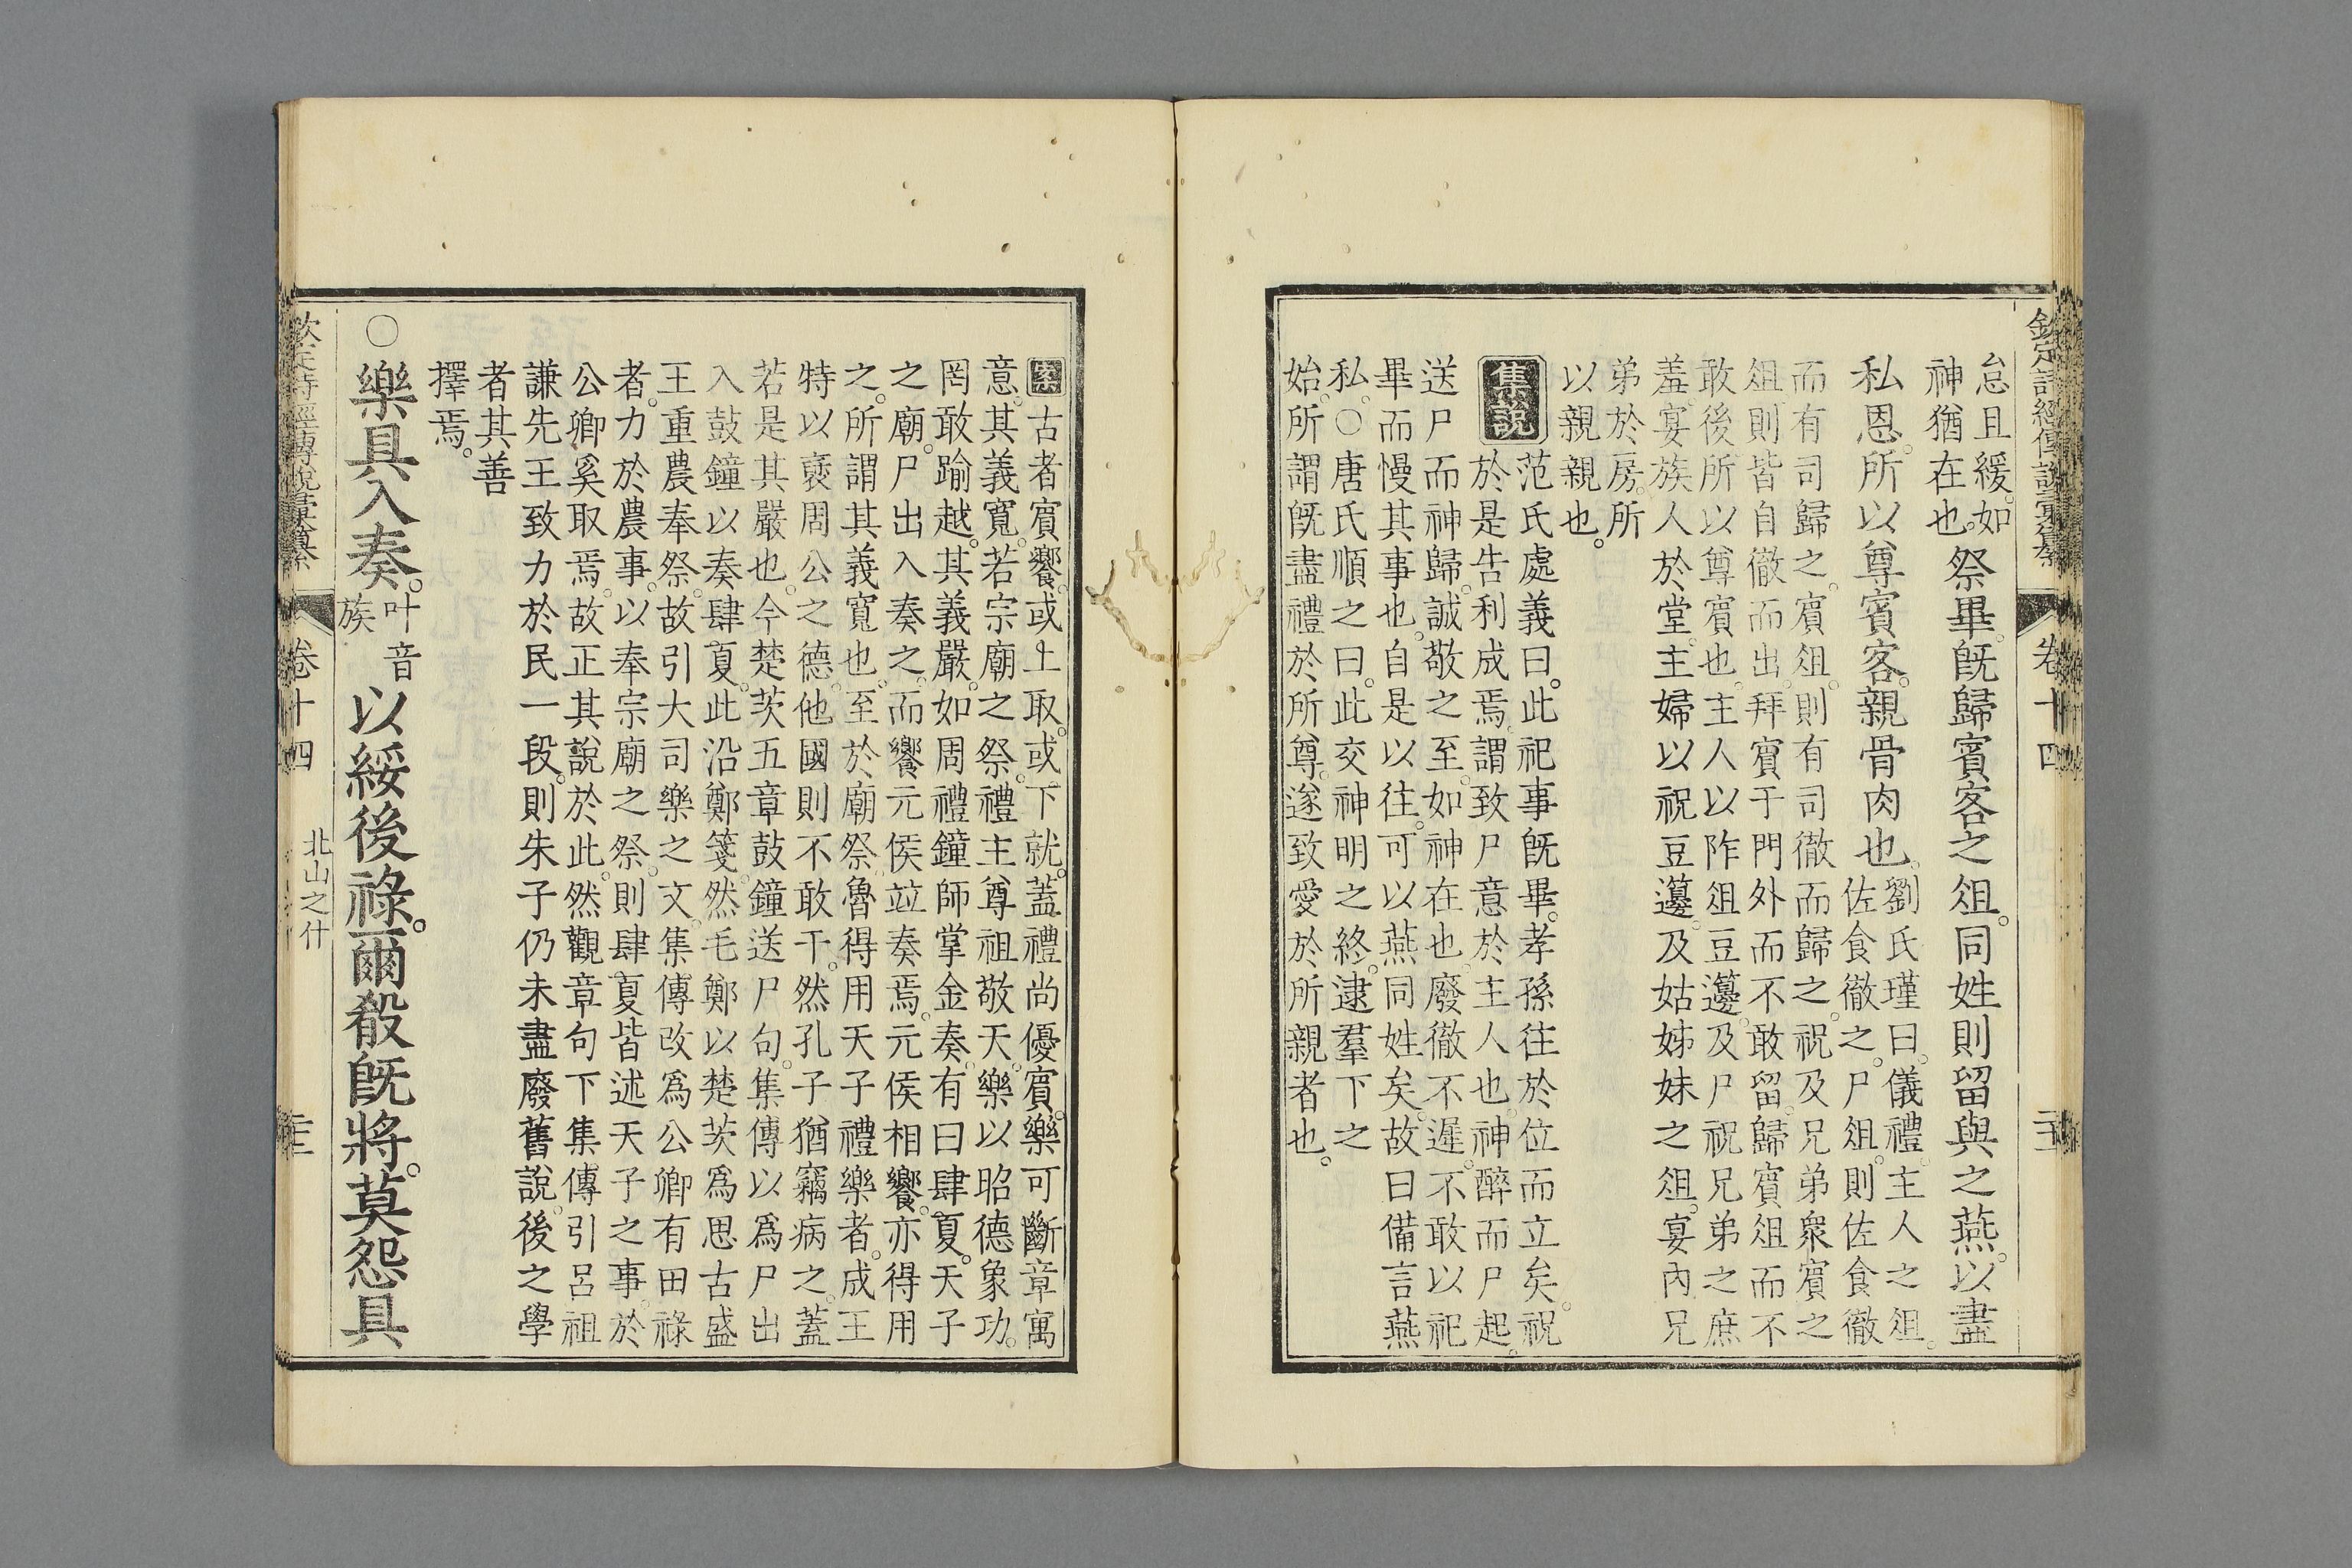 欽定詩經傳說彙纂
卷十四
怠且緩如
神猶在也
祭畢旣歸賓客之俎同姓則留與之燕以盡
私恩所以尊賓客親骨肉也
劉氏瑾曰儀禮主人之俎
佐食徹之尸俎則佐食徹
而有司歸之賓俎則有司徹而歸之祝及兄弟衆賓之
俎則皆自徹而出拜賓于門外而不敢留歸賓俎而不
敢後所以尊賓也主人以阼俎豆籩及尸祝兄弟之庶
羞宴族人於堂主婦以祝豆籩及姑姊妹之俎宴內兄
弟於房所
以親親也
集說
范氏處義曰此祀事旣畢孝孫往於位而立矣祝
於是告利成焉謂致尸意於主人也神醉而尸起
送尸而神歸誠敬之至如神在也廢徹不遲不敢以祀
畢而慢其事也自是以往可以燕同姓矣故曰備言燕
私○唐氏順之曰此交神明之終逮羣下之
始所謂旣盡禮於所尊遂致愛於所親者也
案古者賓饗或上取或下就蓋禮尚優賓樂可斷章寓
意其義寬若宗廟之祭禮主尊祖敬天樂以昭德象功
罔敢踰越其義嚴如周禮鐘師掌金奏有曰肆夏天子
之廟尸出入奏之而饗元侯竝奏焉元侯相饗亦得用
之所謂其義寬也至於廟祭魯得用天子禮樂者成王
特以襃周公之德他國則不敢干然孔子猶竊病之蓋
若是其嚴也今楚茨五章鼓鐘送尸句集傳以爲尸出
入鼓鐘以奏肆夏此沿鄭箋然毛鄭以楚茨爲思古盛
王重農奉祭故引大司樂之文集傳改爲公卿有田祿
者力於農事以奉宗廟之祭則肆夏皆述天子之事於
公卿奚取焉故正其說於此然觀章句下集傳引呂祖
謙先王致力於民一段則朱子仍未盡廢舊說後之學
者其善
擇焉
○樂具入奏
叶音
族
以綏後祿爾殽旣將莫怨具
欽定詩經傳說彙纂
卷十四
北山之什